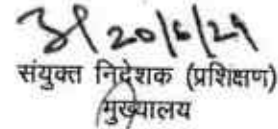 20/6/24
संयुक्त निदेशक (प्रशिक्षण)
मुख्यालय